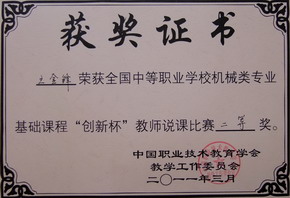 获奖证书
荣获全国中等职业学校机械类专业
基础课程“创新杯”教师说课比赛二等奖。
中国职业技术教育学会
教学工作委员会
二〇一一年三月